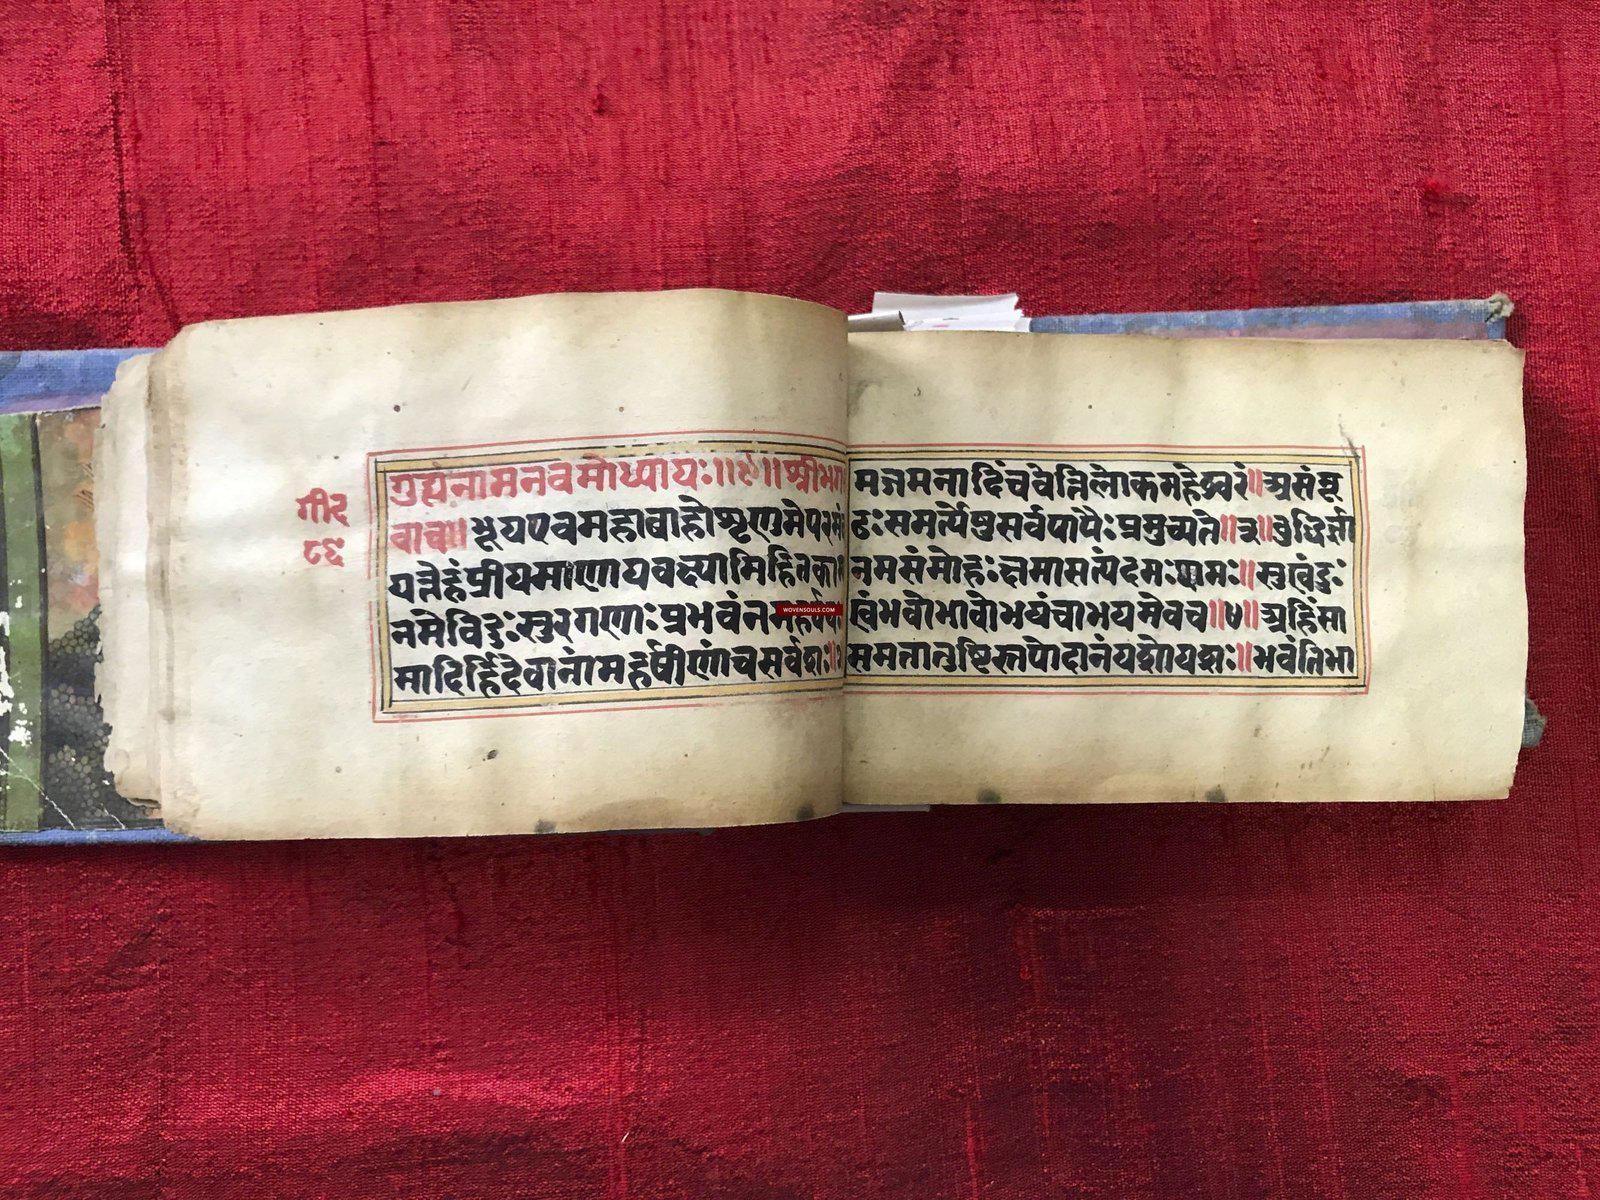 गी२
८९
गुह्यंनामनवमोध्यायः॥९॥श्रीभग
वाच॥भूयएवमहाबाहोशृणुमेपरमं
यत्तेहंप्रीयमाणायवक्ष्यामिहितका
नमेविदुःसुरगणाःप्रभवंनमहर्षयः
WOVENSOULS.COM
मादिर्हिदेवानांमहर्षीणांचसर्वशः॥२
मजमनादिंचवेत्तिलोकमहेश्वरं॥असंमू
ढःसमर्त्येषुसर्वपापैःप्रमुच्यते॥३॥बुद्धिर्ज्ञा
नमसंमोहःक्षमासत्यंदमःशमः॥सुखंदुः
खंभवोभावोभयंचाभयमेवच॥४॥अहिंसा
समतातुष्टिस्तपोदानंयशोयशः॥भवंतिभा